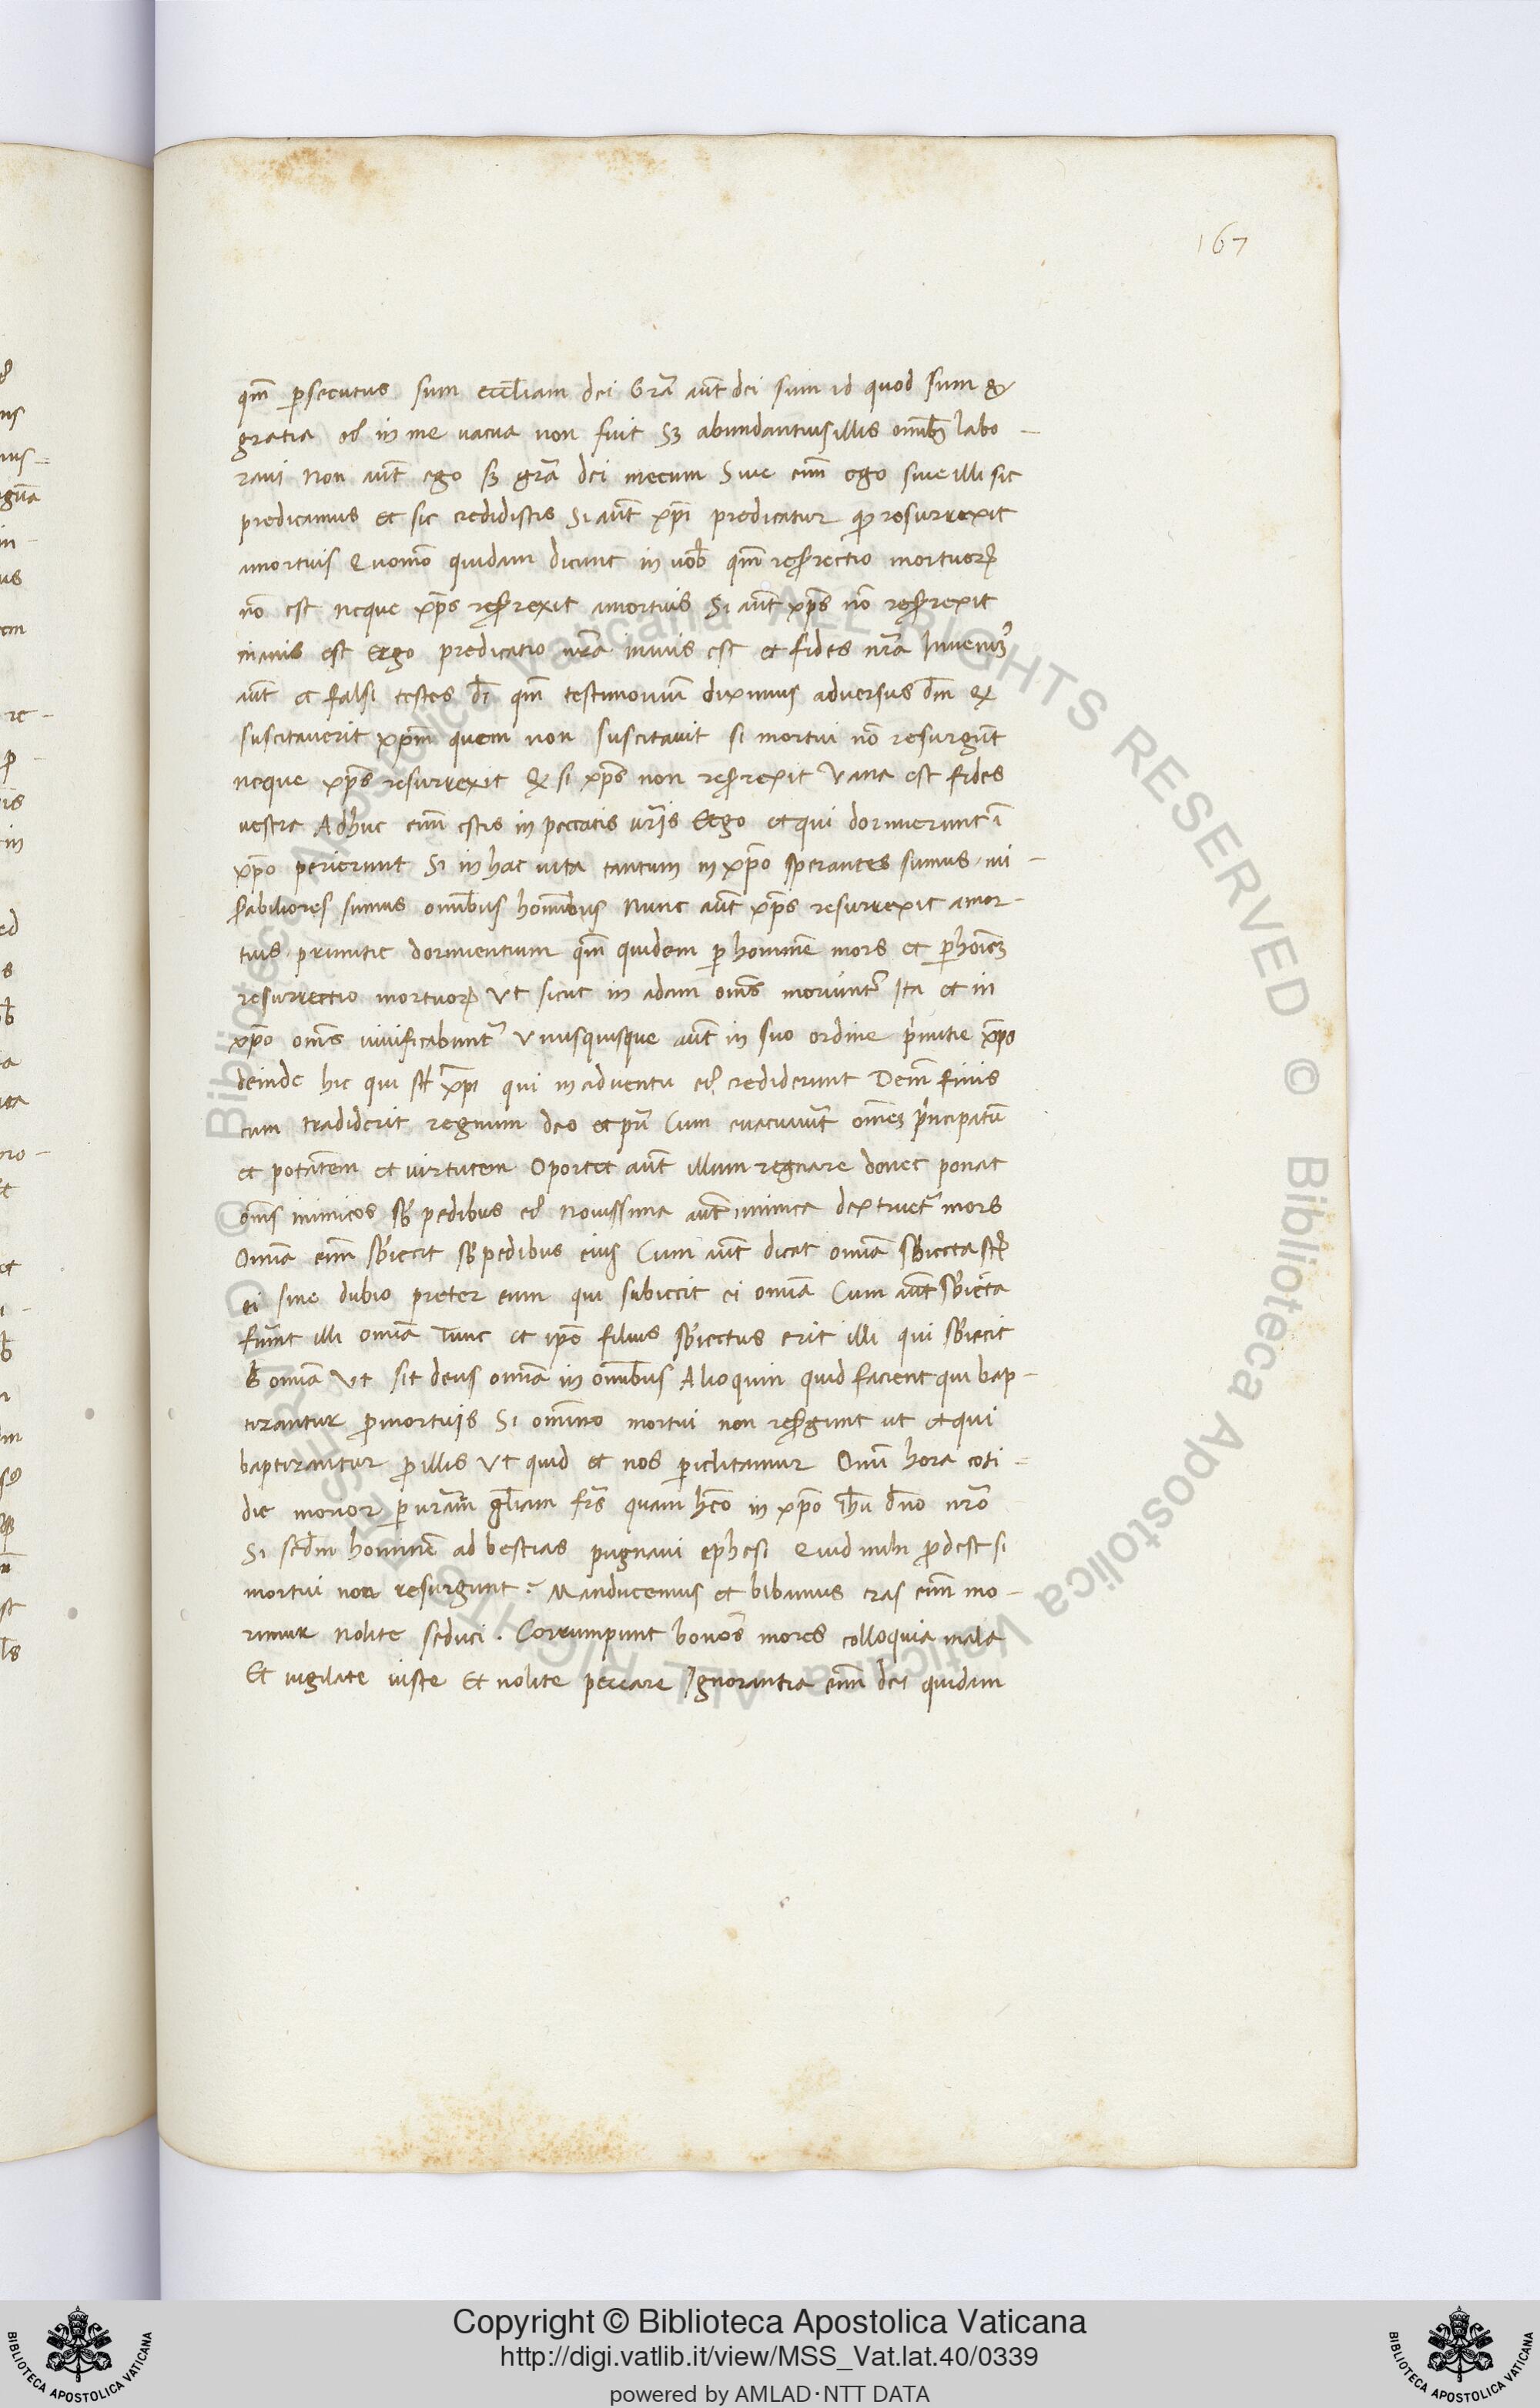 167
qm̄ ꝑsecutus sum eccl̄iam dei Gr̄a aūt dei sum id quod sum &
gratia eꝰ in me uacua non fuit Sꝫ abundantius illis omib᷒ labo-
raui Non aūt ego sꝫ gr̄a dei mecum Siue em̄ ego siue illi sic
predicamus et sic credidistis Si aūt xp̄i predicatur ꝙ resurrexit
amortuis Quomo͞ quidam dicunt in uob̄ qm̄ resꝰrectio mortuoꝝ
no͞ est neque xp̄s resꝰrexit amortuis Si aūt xp̄s no͞ resꝰrexit
inanis est Ergo predicatio nr̄a inanis est et fides nr̄a Inuenimꝰ
aūt et falsi testes dī qm̄ testimoniū diximus aduersus dm̄ ꝙ
suscitauerit xp̄m quem non suscitauit si mortui no͞ resurgūt
neque xp̄s resurrexit Q si xp̄s non resꝰrexit Vana est fides
uestra Adhuc em̄ estis in peccatis ur̄is Ergo et qui dormierunt ī
xp̄o perierunt Si in hac uita tantum in xp̄o sperantes sumus mi-
sꝰabiliores sumus omib̄us homib̄us Nunc aūt xp̄s resurrexit amor-
tuis primitie dormientium qm̄ quidem ꝑ hominē mors et ꝑ hoīeꝫ
resurrectio mortuoꝝ Ut sicut in adam om̄s moriuntᷣ Ita et in
xp̄o om̄s uiuificabuntᷣ Vnusquisque aūt in suo ordine pͥmitie xp̄s
deinde hic qui st̄ xp̄i qui in aduentu eꝰ crediderunt Dein̄ finis
cum tradiderit regnum deo et pr̄i Cum euacuauit omēꝫ pͥncipatū
et potātem et uirtutem Oportet aūt illum regnare donec ponat
om̄s inimicos sb̄ pedibus eꝰ Nouissima aūt inimica dextruetᷣ mors
Omīa em̄ sb̄iecit sb̄ pedibus eius Cum aūt dicat omīa sb̄iecta st̄
ei sine dubio preter eum qui subiecit ei omīa Cum aūt sb̄iecta
fuīnt illi omīa Tunc et ip̄e filius sb̄iectus erit illi qui sb̄iecit
s̄ omīa Ut sit deus omīa in omib̄us Alioquin quid facient qui bap-
tizantur ꝓ mortuis Si omīno mortui non resꝰgunt ut et qui
baptizantur ꝓ illis Ut quid et nos ꝑiclitamur Omī hora coti-
die morior ꝑ ur̄am gl̄iam fr̄s quam hēo in xp̄o ih̄u dn̄o nr̄o
Si scd̄m hominē ad bestias pugnaui ephesi Quid mihi ꝓdest si
mortui non resurgunt? Manducemus et bibamus cras em̄ mo-
rimur Nolite seduci. Corrumpunt bonos mores colloquia mala
Et uigilate iuste Et nolite peccare Ignorantia em̄ dei quidam
Copyright © Biblioteca Apostolica Vaticana
http://digi.vatlib.it/view/MSS_Vat.lat.40/0339
powered by AMLAD·NTT DATA